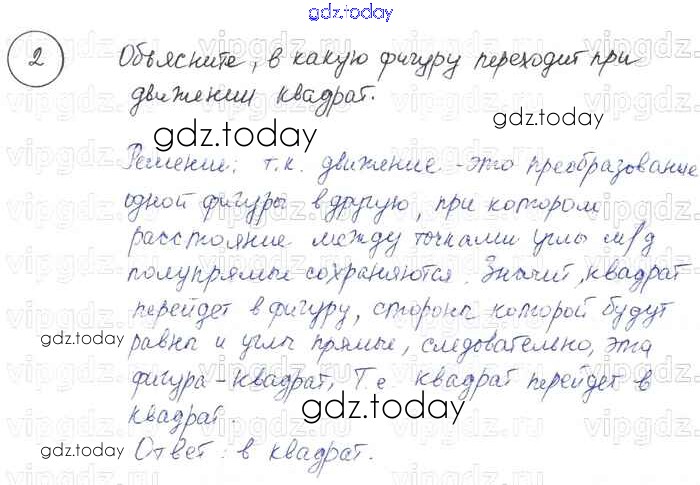 gdz.today
2 Объясните, в какую фигуру переходит при
движении квадрат.
gdz.today
Решение: т.к. движение - это преобразование
одной фигуры в другую, при котором
расстояние между точками углы м/д
полупрямые сохраняются. Значит, квадрат
перейдет в фигуру, стороны которой будут
gdz.today
равны и углы прямые, следовательно, эта
фигура - квадрат, Т.е. квадрат перейдет в
квадрат.
gdz.today
gdz.today
Ответ: в квадрат.